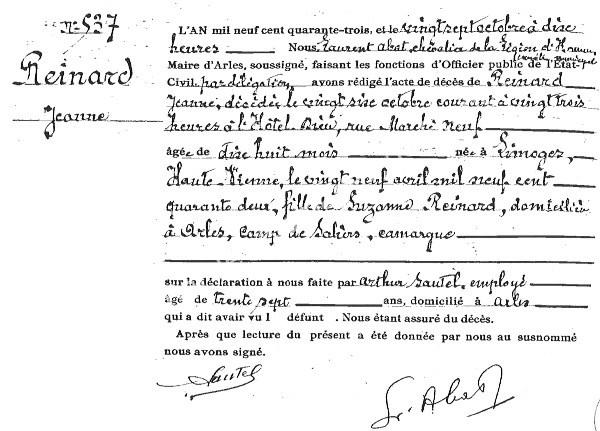 N° 537
Reinard
Jeanne
L'AN mil neuf cent quarante-trois, et le vingt sept octobre à dix
heures Nous, Laurent Abat, chevalier de la Légion d'Honneur,
Maire d'Arles, soussigné, faisant les fonctions d'Officier public de l'État-
Civil, par délégation, avons rédigé l'acte de décès de Reinard
Jeanne, décédée le vingt six octobre courant à vingt trois
heures à l'Hôtel Dieu, rue Marché Neuf
âgée de dix huit mois née à Limoges,
Haute Vienne, le vingt neuf avril mil neuf cent
quarante deux, fille de Suzanne Reinard, domiciliée
à Arles, camp de Saliers, camargue
sur la déclaration à nous faite par Arthur Sautel, employé
âgé de trente sept ans, domicilié à Arles
qui a dit avoir vu l défunt . Nous étant assuré du décès.
Après que lecture du présent a été donnée par nous au susnommé
nous avons signé.
Sautel
Lt. Abat